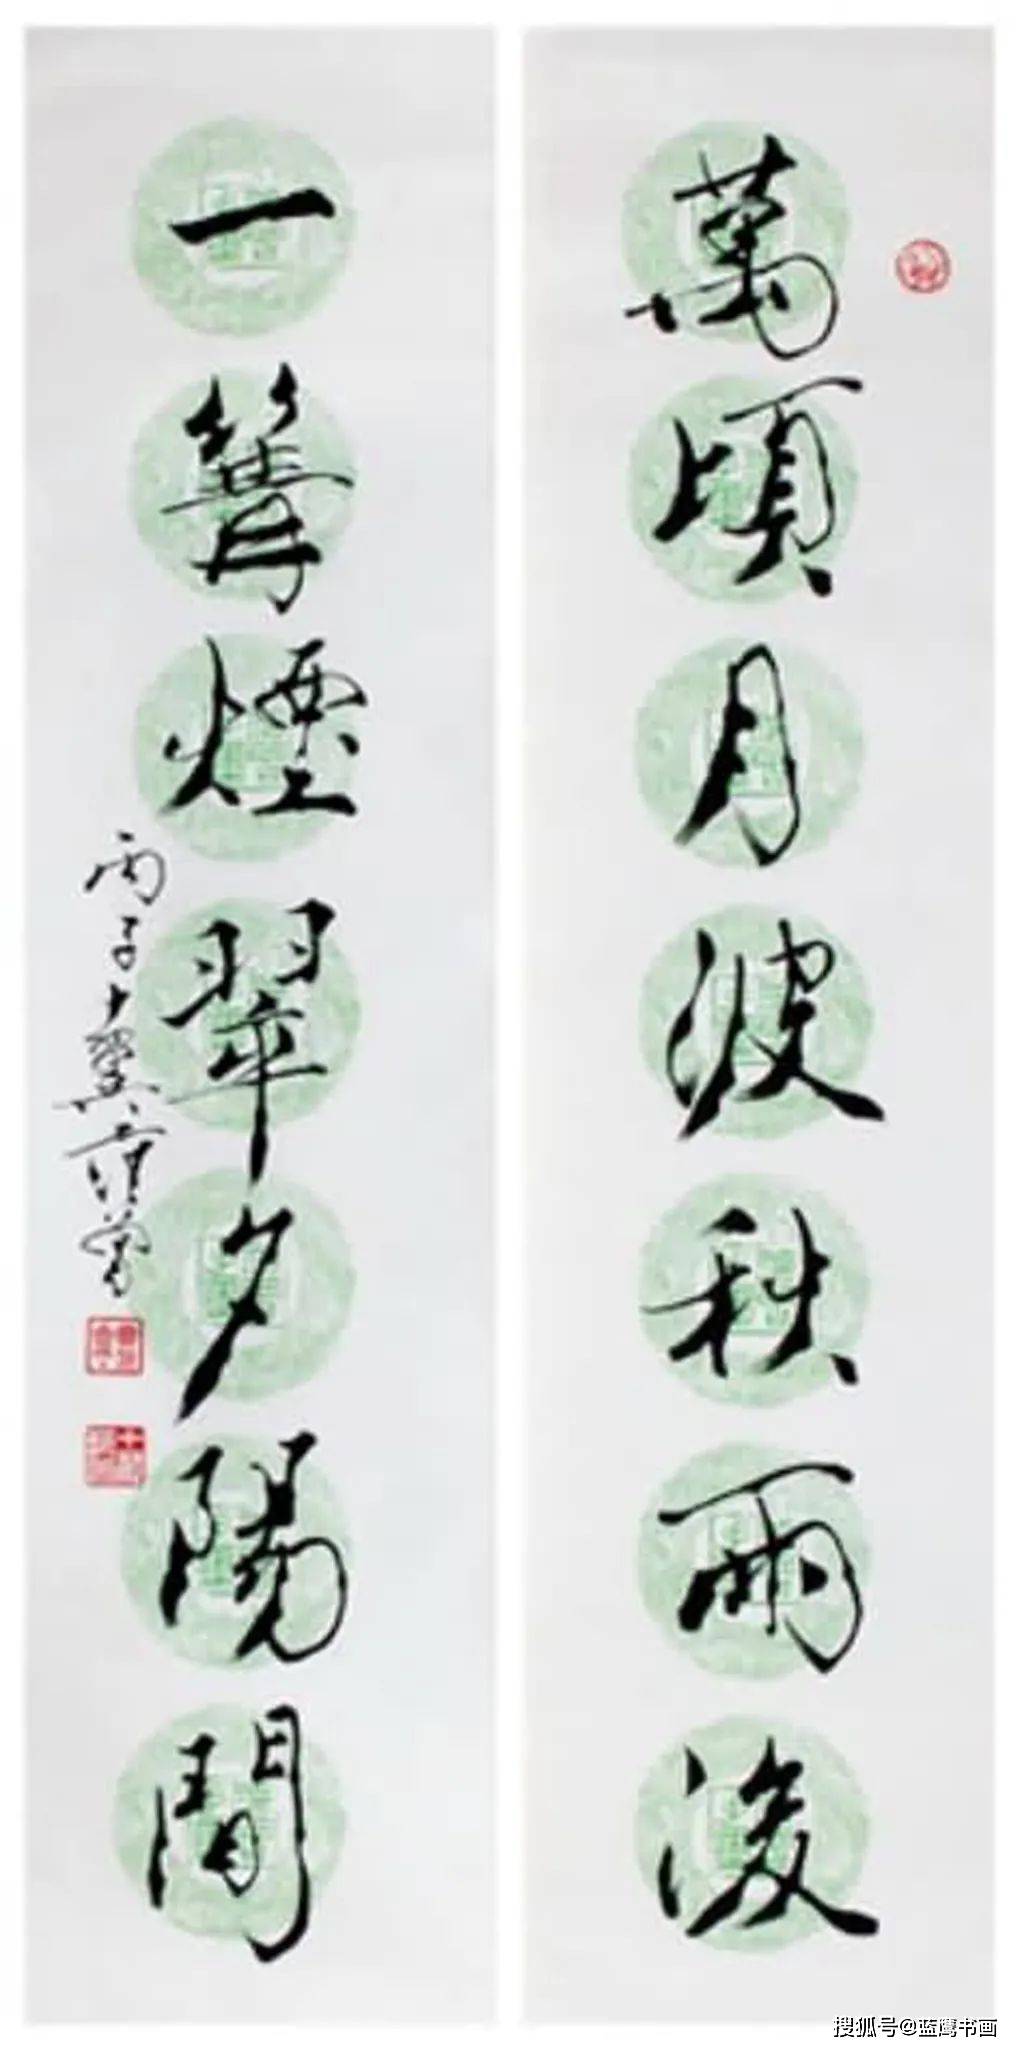 萬頃月波秋雨後
一篝煙翠夕陽間
丙子十翼范曾
搜狐号@蓝鹰书画